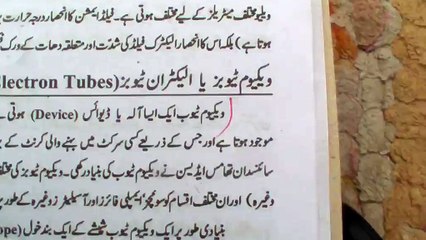 ویلیو مختلف میٹریلز کے لیے مختلف ہوتی ہے۔ فیلڈ ایمشن کا انحصار درجہ حرارت پر
ہوتا ہے) بلکہ اس کا انحصار الیکٹرک فیلڈ کی شدت اور متعلقہ دھات کے ورک
ویکیوم ٹیوبز یا الیکٹران ٹیوبز (Electron Tubes
ویکیوم ٹیوب ایک ایسا آلہ یا ڈیوائس (Device) ہوتی
موجود ہوتا ہے اور جس کے ذریعے کسی سرکٹ میں بہنے والی کرنٹ کے
سائنسدان تھامس ایڈیسن نے ویکیوم ٹیوب کی بنیاد رکھی۔ ویکیوم ٹیوبز کی مختلف
وغیرہ) اور ان مختلف اقسام کو سوئچز، ایمپلی فائرز اور آسیلیٹرز وغیرہ کے طور پر
بنیادی طور پر ایک ویکیوم ٹیوب شیشے کے ایک بند خول (ope